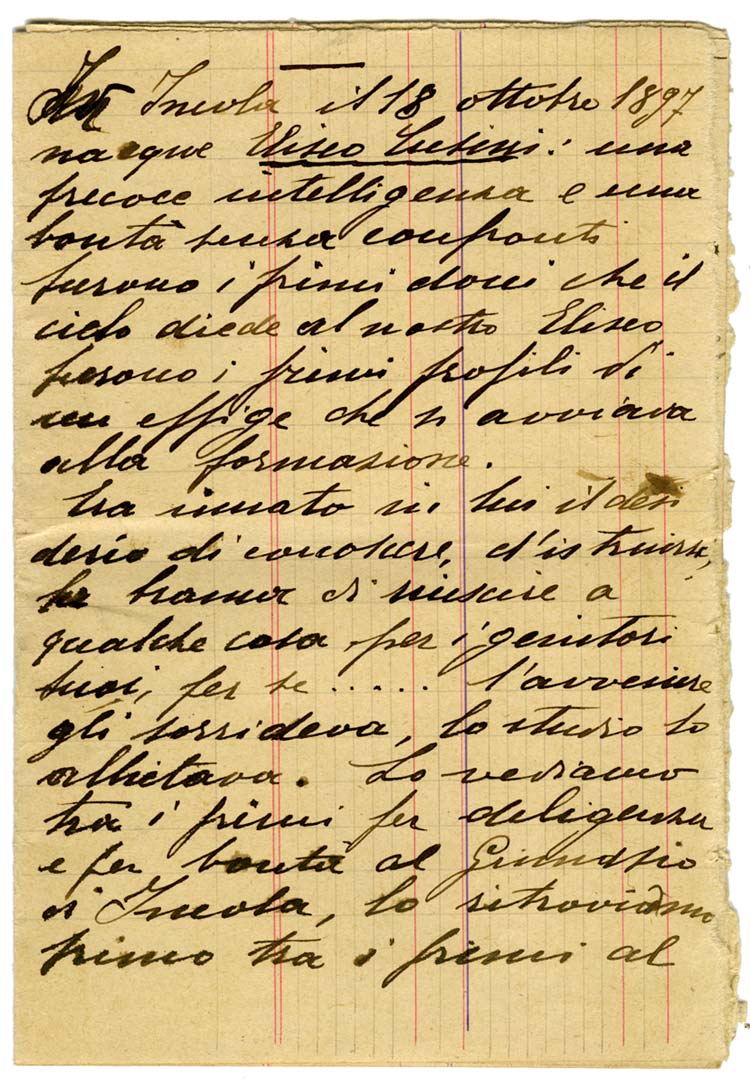 In Imola il 18 ottobre 1897
nacque Eliseo Lusini: una
precoce intelligenza e una
bontà senza confronti
furono i primi doni che il
cielo diede al nostro Eliseo,
furono i primi profili di
un effige che si avviava
alla formazione.
Era innato in lui il desi
derio di conoscere, d'istruirsi,
brama di riuscire a
qualche cosa per i genitori
suoi, per se ..... l'avvenire
gli sorrideva, lo studio lo
allietava. Lo vediamo
tra i primi per deligenza
e per bontà al Ginnasio
di Imola, lo ritroviamo
primo tra i primi al